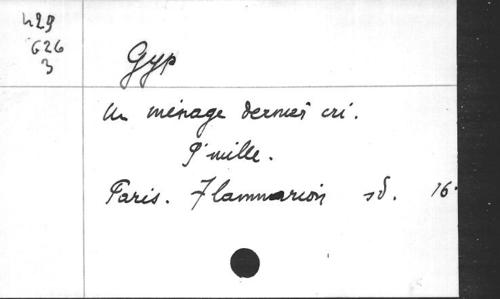 429
G26
3
Gyp
Un ménage dernier cri.
9e mille.
Paris. Flammarion sd. 16°